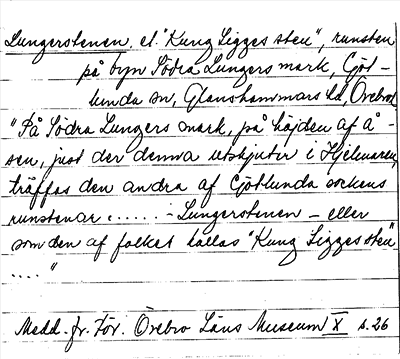 Lungerstenen, el. "Kung Sigges sten", runsten
på byn Södra Lungers mark, Göt-
lunda sn, Glanshammars hd, Örebro
"På Södra Lungers mark, på höjden af å-
sen, just der denna utskjuter i Hjelmaren,
träffas den andra af Götlunda sockens
runstenar ...... - Lungerstenen - eller
som den af folket kallas "Kung Sigges sten"
.... "
Medd. fr. För. Örebro Läns Museum X s. 26